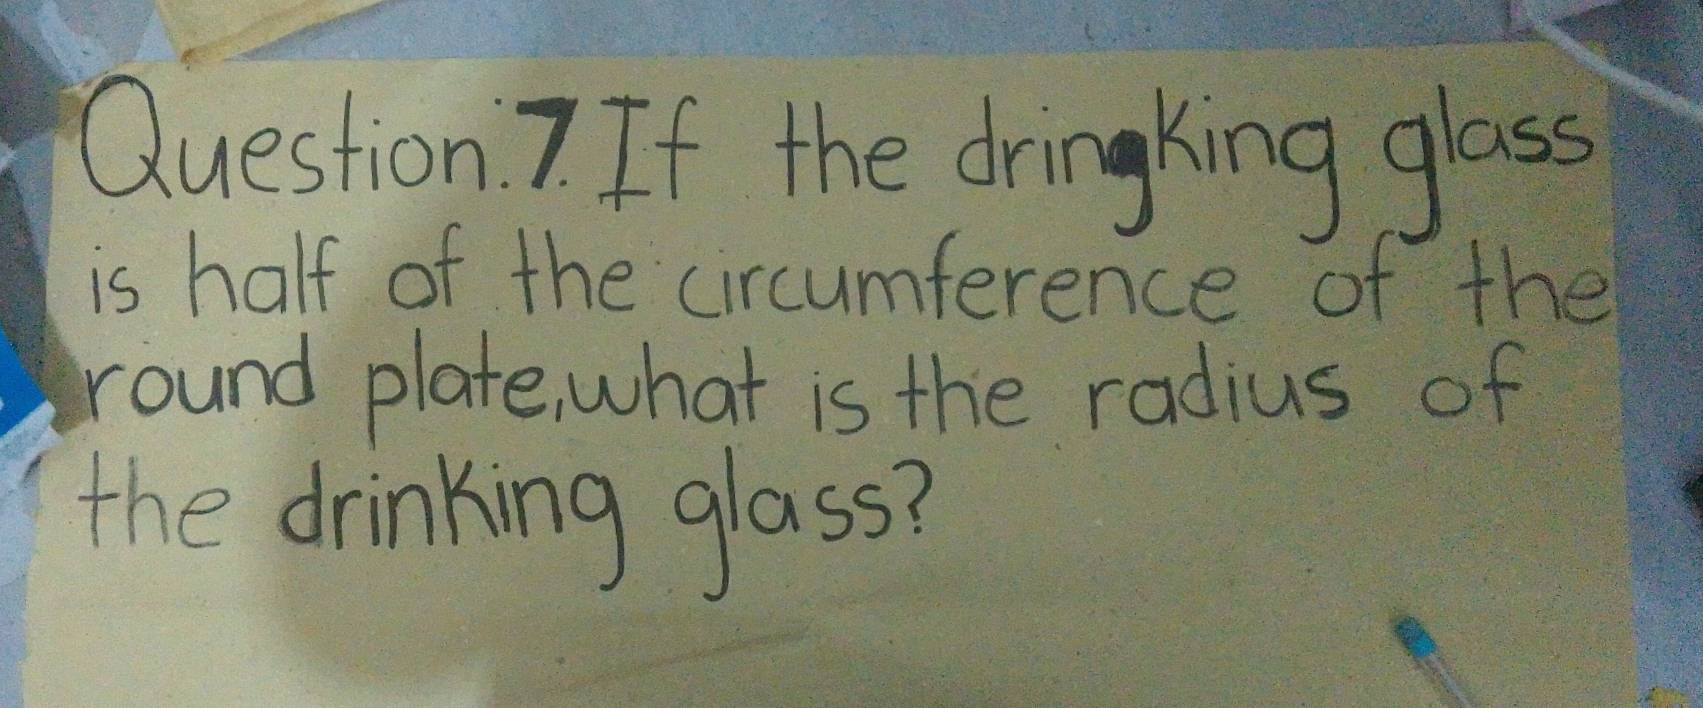 Question.7. If the dringking glass
is half of the circumference of the
round plate, what is the radius of
the drinking glass?